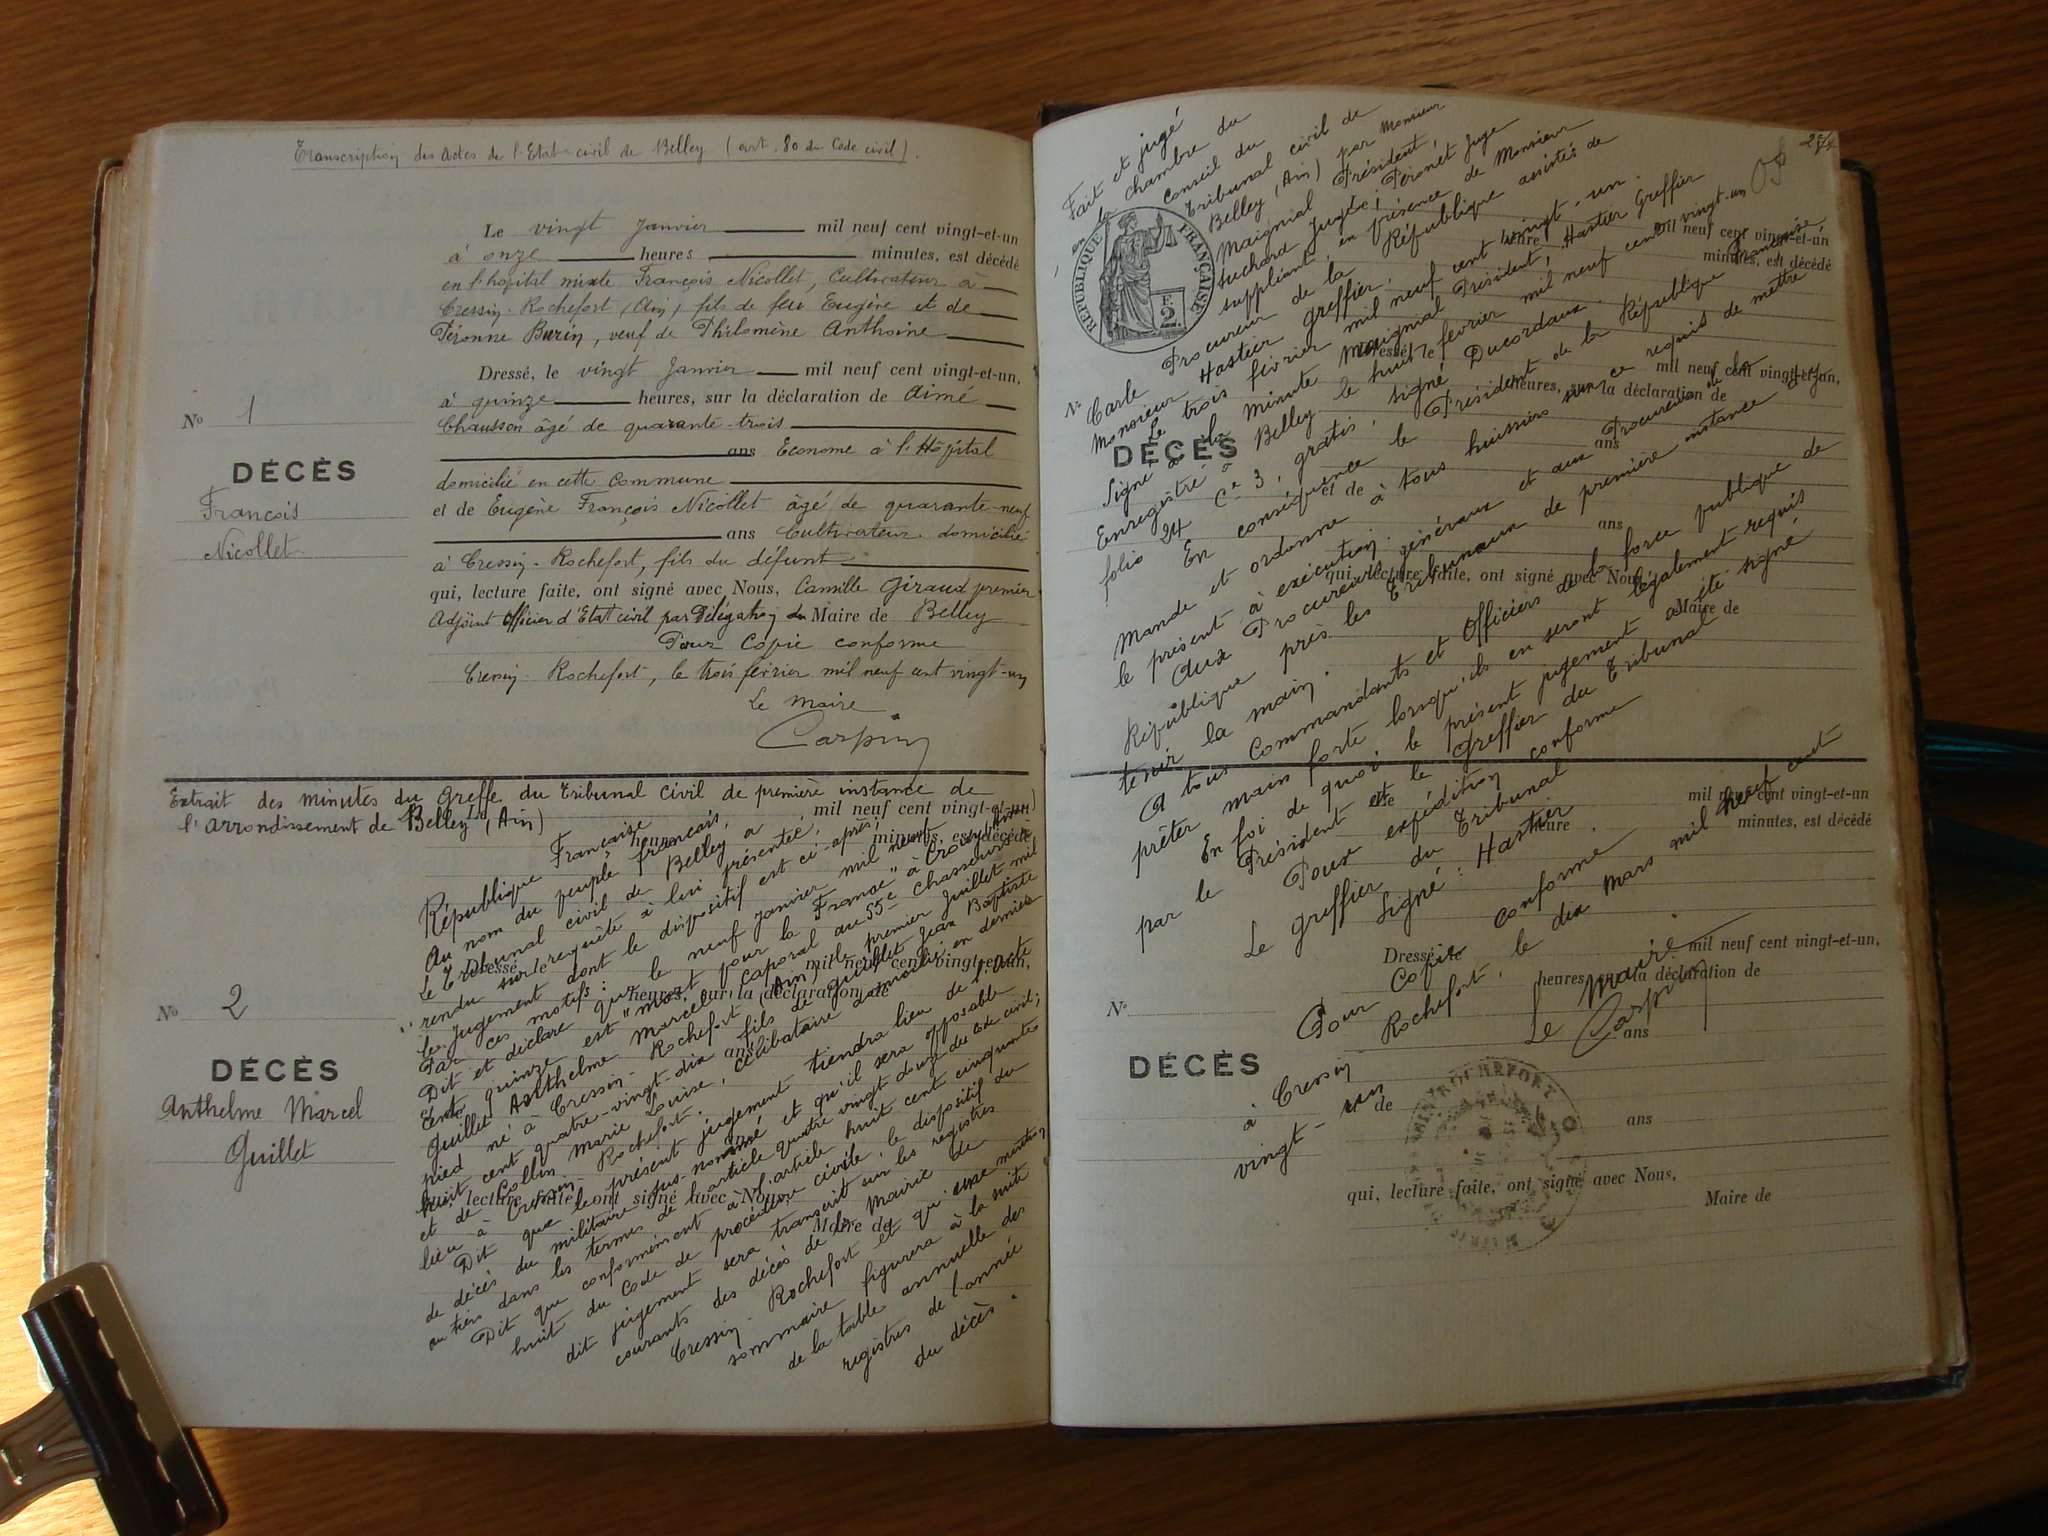 Transcription des Actes de l'Etat-civil de Belley (art. 80 du Code civil).
Le vingt Janvier mil neuf cent vingt-et-un
à onze heures minutes, est décédé
en l'hôpital mixte François Nicollet, Cultivateur à
Cressin-Rochefort (Ain) fils de feu Eugène et de
Péronne Burin, veuf de Philomène Anthoine
Dressé, le vingt Janvier mil neuf cent vingt-et-un,
à quinze heures, sur la déclaration de Aimé
Chausson âgé de quarante-trois
ans Econome à l'Hôpital
domicilié en cette commune
et de Eugène François Nicollet âgé de quarante-neuf
ans Cultivateur domicilié
à Cressin-Rochefort, fils du défunt
qui, lecture faite, ont signé avec Nous, Camille Giraud premier
Adjoint Officier d'Etat civil par Délégation du Maire de Belley
Pour Copie conforme
Cressin-Rochefort, le trois février mil neuf cent vingt-un
Le Maire
Carpin
No 1
DÉCÈS
François
Nicollet
Extrait des minutes du Greffe du Tribunal Civil de première instance de
l'Arrondissement de Belley (Ain)
Le mil neuf cent vingt-et-un
heures, minutes, est décédé
République Française
Au nom du peuple français,
Le Tribunal civil de Belley a
rendu sur requête à lui présentée,
le jugement dont le dispositif est ci-après:
Par ces motifs:
Dit et déclare que le neuf Janvier mil neuf
cent quinze est "mort pour la France" à
Guillet Anthelme Marcel, Caporal au 55e Chasseurs à
pied né à Cressin-Rochefort (Ain) le premier Juillet mil
huit cent quatre-vingt-dix fils de Guillet Jean Baptiste
et de Collin Marie Louise, célibataire domicilié en dernier
lieu à Cressin-Rochefort.
Dit que le présent jugement tiendra lieu de l'acte
de décès du militaire sus-nommé et qu'il sera opposable
au tiers dans les termes de l'article quatre vingt douze du Code civil;
Dit que conformément à l'article huit cent cinquante
huit du Code de procédure civile, le dispositif du
dit jugement sera transcrit sur les registres
courants des décès de la Mairie de
Cressin-Rochefort et qu'une mention
sommaire figurera à la suite
de la table annuelle des
registres de l'année
du décès.
Dressé, le mil neuf cent vingt-et-un,
heures, sur la déclaration de
ans
qui, lecture faite, ont signé avec Nous,
Maire de
No 2
DÉCÈS
Anthelme Marcel
Guillet
274
Fait et jugé
en chambre du
Conseil du
Tribunal civil de
Belley (Ain) par Monsieur
Maignial Président,
suppliant, en présence de Monsieur
Carle Procureur de la République assistés de
Monsieur Hastier greffier.
Le trois février mil neuf cent vingt-un.
Signé à la minute Maignial Président, Hastier Greffier
Enregistré à Belley le huit février mil neuf cent vingt-un
folio 24 Ce 3, gratis, signé Ducordaux.
En conséquence le Président de la République Française
Mande et ordonne à tous huissiers sur ce requis de mettre
le présent à exécution.
Aux Procureurs généraux et aux Procureurs de la
République près les Tribunaux de première instance d'y
tenir la main.
A tous Commandants et Officiers de la force publique de
prêter main forte lorsqu'ils en seront légalement requis
En foi de quoi le présent jugement a été signé
par le Président et le Greffier du Tribunal
Pour expédition conforme
Le greffier du Tribunal
Signé: Hastier
Pour Copie Conforme.
à Cressin-Rochefort, le dix Mars mil neuf cent
vingt-un
Le Maire
Carpin
RÉPUBLIQUE FRANÇAISE
F.
2.
heure mil neuf cent vingt-et-un
minutes, est décédé
Dressé, le mil neuf cent vingt-et-un,
heures, sur la déclaration de
No
DÉCÈS
ans
et de
ans
qui, lecture faite, ont signé avec Nous,
Maire de
Le mil neuf cent vingt-et-un
heure minutes, est décédé
Dressé, le mil neuf cent vingt-et-un,
heures, sur la déclaration de
No
DÉCÈS
ans
et de
ans
qui, lecture faite, ont signé avec Nous,
Maire de